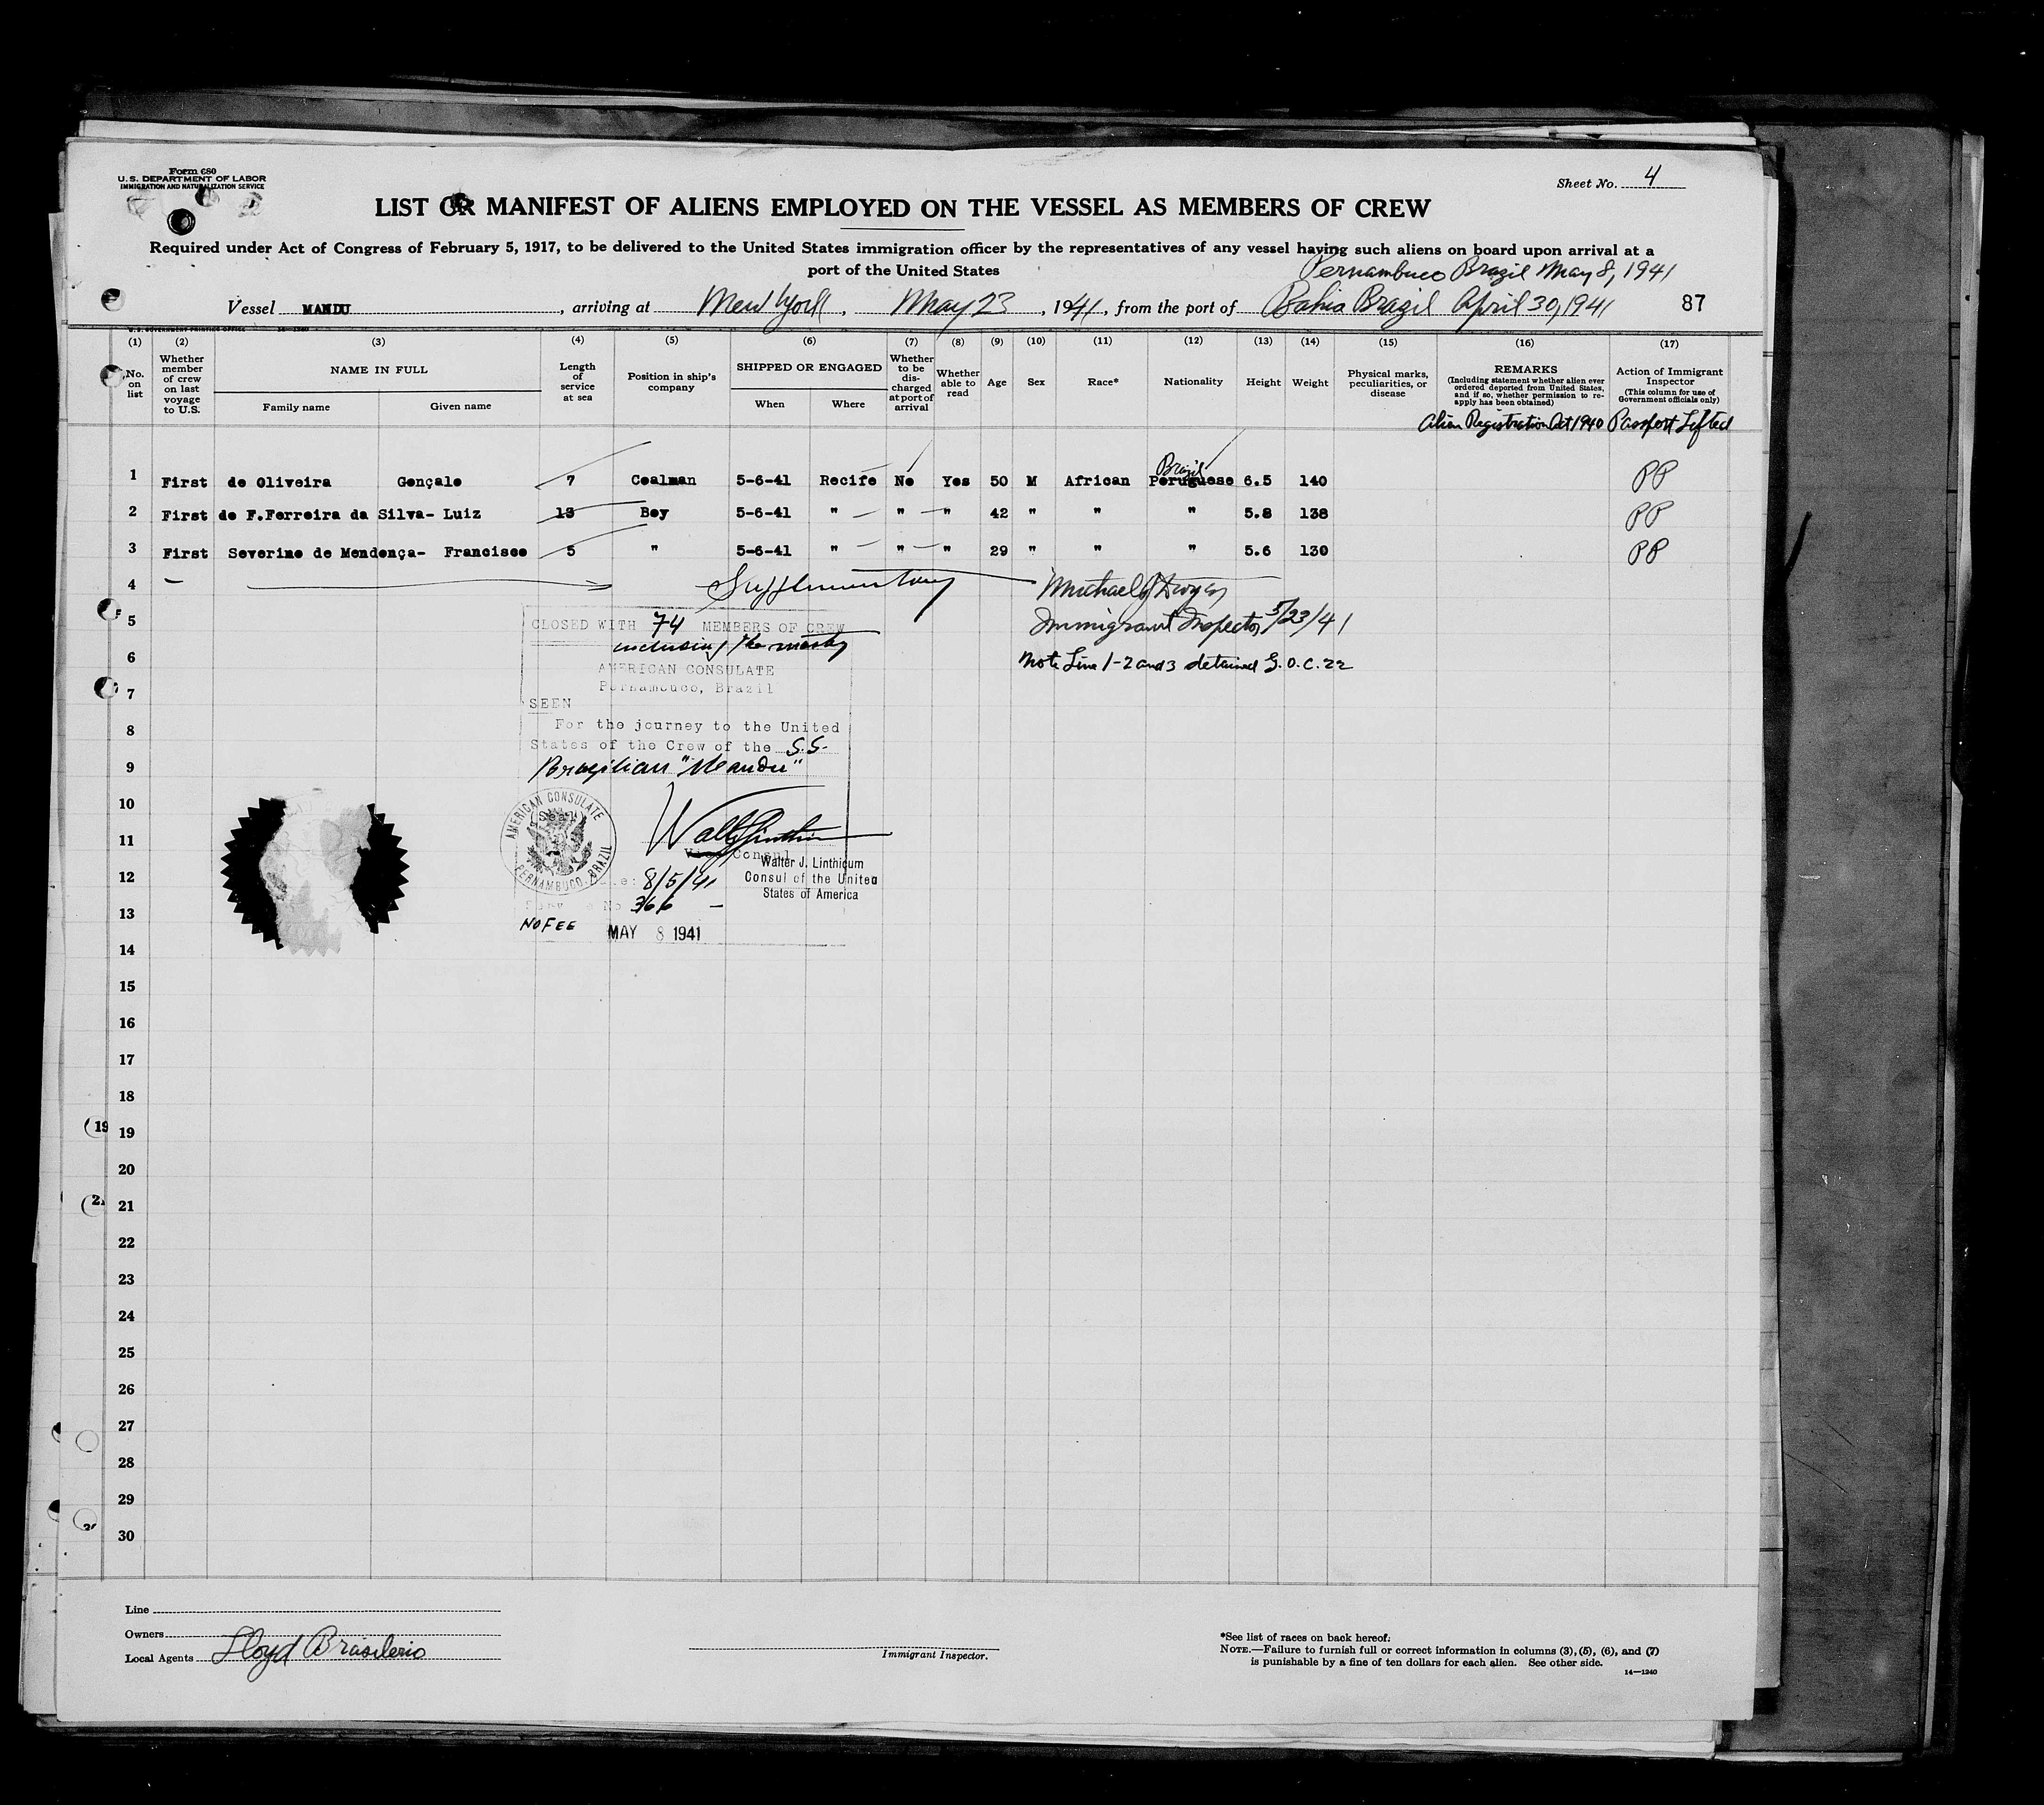 Form 680
U.S. DEPARTMENT OF LABOR
IMMIGRATION AND NATURALIZATION SERVICE
Sheet No. 4
LIST OR MANIFEST OF ALIENS EMPLOYED ON THE VESSEL AS MEMBERS OF CREW
Required under Act of Congress of February 5, 1917, to be delivered to the United States immigration officer by the representatives of any vessel having such aliens on board upon arrival at a
port of the United States
Pernambuco Brazil May 8, 1941
Vessel MANDU, arriving at New York, May 23, 1941, from the port of Bahia Brazil April 30, 1941 87
U.S. GOVERNMENT PRINTING OFFICE 14—1240
(1) (2) (3) (4) (5) (6) (7) (8) (9) (10) (11) (12) (13) (14) (15) (16) (17)
No. on list
Whether member of crew on last voyage to U.S.
NAME IN FULL
Family name Given name
Length of service at sea
Position in ship's company
SHIPPED OR ENGAGED
When Where
Whether to be discharged at port of arrival
Whether able to read
Age
Sex
Race*
Nationality
Height
Weight
Physical marks, peculiarities, or disease
REMARKS
(Including statement whether alien ever ordered deported from United States, and if so, whether permission to reapply has been obtained)
Action of Immigrant Inspector
(This column for use of Government officials only)
Alien Registration Act 1940 Passport Lifted
Brazil
1 First de Oliveira Gonçalo 7 Coalman 5-6-41 Recife No Yes 50 M African Portuguese 6.5 140 PP
2 First de F.Ferreira da Silva- Luiz 13 Boy 5-6-41 " " " 42 " " " 5.8 138 PP
3 First Severino de Mendonça- Francisco 5 " 5-6-41 " " " 29 " " " 5.6 130 PP
4 — Supplementary Michael J Dwyer
5 CLOSED WITH 74 MEMBERS OF CREW Immigrant Inspector 5/23/41
including the master
6 AMERICAN CONSULATE Note Line 1-2 and 3 detained G.O.C. 22
Pernambuco, Brazil
7
SEEN
8 For the journey to the United
States of the Crew of the S.S.
9 Brazilian "Mandu"
10
AMERICAN CONSULATE
(Seal)
PERNAMBUCO, BRAZIL
11
Vice Consul
Walter J. Linthicum
12 Consul of the United
States of America
8/5/41
13 366
NO FEE MAY 8 1941
14
15
16
17
18
19
20
21
22
23
24
25
26
27
28
29
30
Line
Owners
Local Agents Lloyd Brasileiro
Immigrant Inspector.
*See list of races on back hereof.
NOTE.—Failure to furnish full or correct information in columns (3), (5), (6), and (7)
is punishable by a fine of ten dollars for each alien. See other side.
14—1240